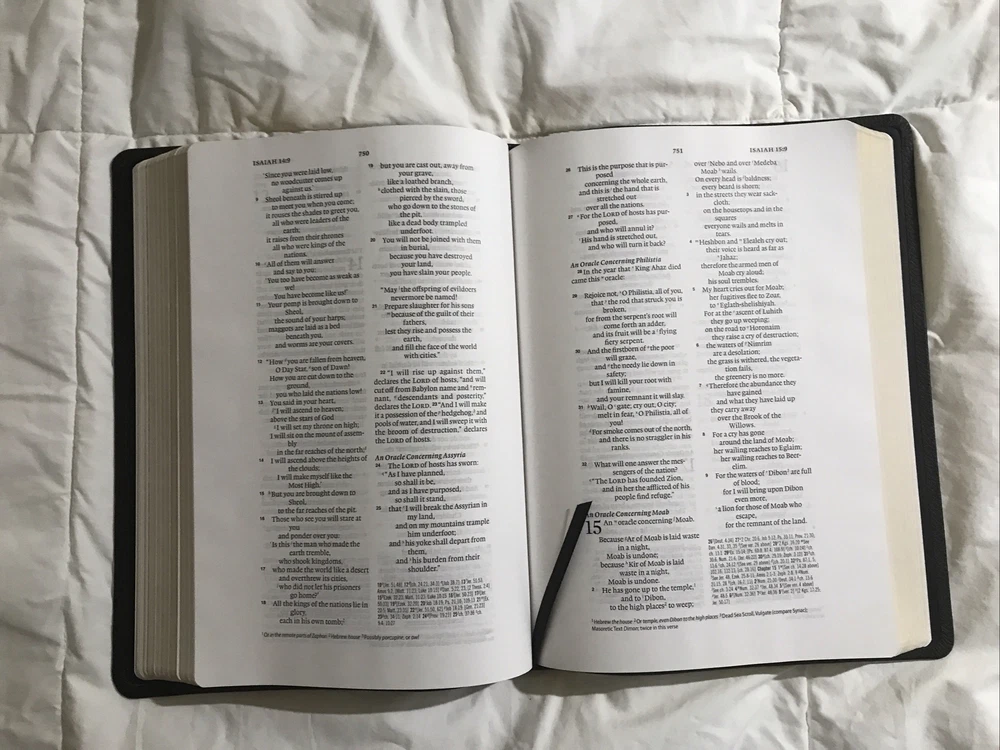 ISAIAH 14:9
750
"Since you were laid low,
no woodcutter comes up
against us.'
9 Sheol beneath is stirred up
to meet you when you come;
it rouses the shades to greet you,
all who were leaders of the
earth;
it raises from their thrones
all who were kings of the
nations.
10 All of them will answer
and say to you:
'You too have become as weak as
we!
You have become like us!'
11 Your pomp is brought down to
Sheol,
the sound of your harps;
maggots are laid as a bed
beneath you,
and worms are your covers.
12 "How you are fallen from heaven,
O Day Star, son of Dawn!
How you are cut down to the
ground,
you who laid the nations low!
13 You said in your heart,
'I will ascend to heaven;
above the stars of God
I will set my throne on high;
I will sit on the mount of assem-
bly
in the far reaches of the north;
14 I will ascend above the heights of
the clouds;
I will make myself like the
Most High.'
15 But you are brought down to
Sheol,
to the far reaches of the pit.
16 Those who see you will stare at
you
and ponder over you:
'Is this the man who made the
earth tremble,
who shook kingdoms,
17 who made the world like a desert
and overthrew its cities,
who did not let his prisoners
go home?'
18 All the kings of the nations lie in
glory,
each in his own tomb;
19 but you are cast out, away from
your grave,
like a loathed branch,
clothed with the slain, those
pierced by the sword,
who go down to the stones of
the pit,
like a dead body trampled
underfoot.
20 You will not be joined with them
in burial,
because you have destroyed
your land,
you have slain your people.
"May the offspring of evildoers
nevermore be named!
21 Prepare slaughter for his sons
because of the guilt of their
fathers,
lest they rise and possess the
earth,
and fill the face of the world
with cities."
22 "I will rise up against them,"
declares the LORD of hosts, "and will
cut off from Babylon name and rem-
nant, descendants and posterity,"
declares the LORD. 23 "And I will make
it a possession of the hedgehog, and
pools of water, and I will sweep it with
the broom of destruction," declares
the LORD of hosts.
An Oracle Concerning Assyria
24 The LORD of hosts has sworn:
"As I have planned,
so shall it be,
and as I have purposed,
so shall it stand,
25 that I will break the Assyrian in
my land,
and on my mountains trample
him underfoot;
and his yoke shall depart from
them,
and his burden from their
shoulder."
Or in the remote parts of Zaphon Hebrew house Possibly porcupine, or owl
751
ISAIAH 15:9
26 This is the purpose that is pur-
posed
concerning the whole earth,
and this is the hand that is
stretched out
over all the nations.
27 For the LORD of hosts has pur-
posed,
and who will annul it?
His hand is stretched out,
and who will turn it back?
An Oracle Concerning Philistia
28 In the year that King Ahaz died
came this oracle:
29 Rejoice not, O Philistia, all of you,
that the rod that struck you is
broken,
for from the serpent's root will
come forth an adder,
and its fruit will be a flying
fiery serpent.
30 And the firstborn of the poor
will graze,
and the needy lie down in
safety;
but I will kill your root with
famine,
and your remnant it will slay.
31 Wail, O gate; cry out, O city;
melt in fear, O Philistia, all of
you!
For smoke comes out of the north,
and there is no straggler in his
ranks.
32 What will one answer the mes-
sengers of the nation?
"The LORD has founded Zion,
and in her the afflicted of his
people find refuge."
An Oracle Concerning Moab
15 An oracle concerning Moab.
Because Ar of Moab is laid waste
in a night,
Moab is undone;
because Kir of Moab is laid
waste in a night,
Moab is undone.
2 He has gone up to the temple,
and to Dibon,
to the high places to weep;
over Nebo and over Medeba
Moab wails.
On every head is baldness;
every beard is shorn;
3 in the streets they wear sack-
cloth;
on the housetops and in the
squares
everyone wails and melts in
tears.
4 Heshbon and Elealeh cry out;
their voice is heard as far as
Jahaz;
therefore the armed men of
Moab cry aloud;
his soul trembles.
5 My heart cries out for Moab;
her fugitives flee to Zoar,
to Eglath-shelishiyah.
For at the ascent of Luhith
they go up weeping;
on the road to Horonaim
they raise a cry of destruction;
6 the waters of Nimrim
are a desolation;
the grass is withered, the vegeta-
tion fails,
the greenery is no more.
7 Therefore the abundance they
have gained
and what they have laid up
they carry away
over the Brook of the
Willows.
8 For a cry has gone
around the land of Moab;
her wailing reaches to Eglaim;
her wailing reaches to Beer-
elim.
9 For the waters of Dibon are full
of blood;
for I will bring upon Dibon
even more,
a lion for those of Moab who
escape,
for the remnant of the land.
Hebrew the house Or temple, even Dibon to the high places Dead Sea Scroll, Vulgate (compare Syriac);
Masoretic Text Dimon; twice in this verse